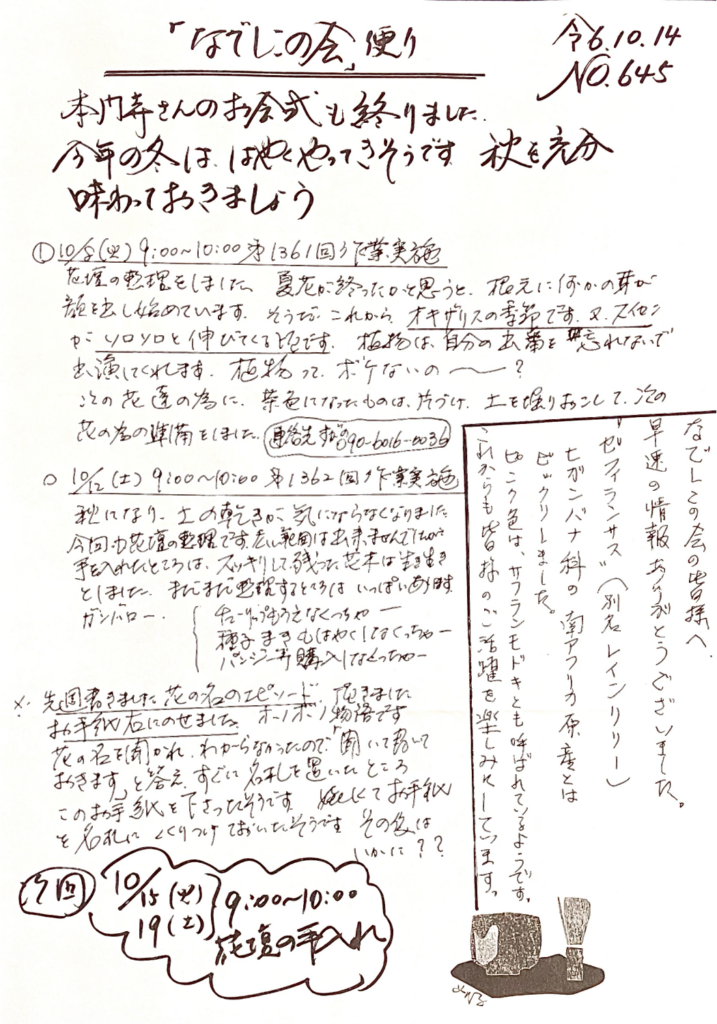 「なでしこの会」便り
令6.10.14
NO.645
本門寺さんのお会式も終りました.
今年の冬は、はやくやってきそうです 秋を充分
味わっておきましょう
① 10/8(火) 9:00~10:00 第1361回作業実施
花壇の整理をしました、夏花が終ったかと思うと、根元に何かの芽が
顔を出し始めています. そうだ これから オキザリスの季節です. 又、スイセン
が ソロソロと伸びてくる頃です. 植物は、自分の出番を忘れないで
出演してくれます. 植物って ボケないの〜〜?
次の花達の為に、茶色になったものは、片づけ、土を掘りおこして、次の
花の為の準備をしました.
連絡先 090-6016-0036
○ 10/12(土) 9:00~10:00 第1362回作業実施
秋になり、土の乾きが、気にならなくなりました
今回も花壇の整理です. 広い範囲は出来ませんでしたが
手を入れたところは、スッキリして、残った花木は生き生き
としました. まだまだ整理するところは いっぱいあります
ガンバロー.
チューリップもうえなくっちゃー
種子まきもはやくしなくっちゃー
パンジー等購入しなくっちゃー
※ 先回書きました花の名のエピソード、頂きました
お手紙右にのせました. ホノボノ物語です
花の名を聞かれ、わからなかったので「聞いて置いて
おきます」と答え、すぐに名札を置いたところ
このお手紙を下さったそうです. 嬉しくてお手紙
を名札に くくりつけておいたそうです その後は
いかに??
なでしこの会の皆様へ
早速の情報ありがとうございました。
"ゼフィランサス"(別名レインリリー)
ヒガンバナ科の南アフリカ原産とは
ビックリしました。
ピンク色は、サフランモドキとも呼ばれているようです。
これからも皆様のご活躍を楽しみにしています。
次回
10/15(火)
19(土)
9:00~10:00
花壇の手入れ